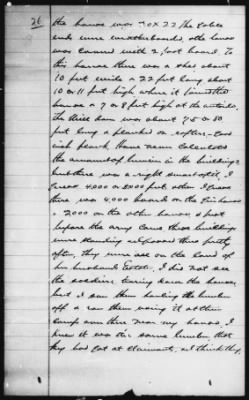 26
the house was 20 x 22 The Gable
ends were weatherboarded, the house
was covered with 2 foot board. To
this house there was a shed about
10 feet wide & 22 feet long about
10 or 11 feet high where it joined the
house & 7 or 8 feet high at the outside.
The was about 75 or 80
feet long & planked on rafters
inch plank. Have never calculated
the amount of lumber in the buildings
but there was a right smart of it, I
guess 4000 or 5000 feet other. I guess
there was 4,000 boards on the Gin house
& 2000 on the other house. Just
before the army came these buildings
were standing up, passed there pretty
often, they were all on the land of
her husbands Estate. I did not see
the soldiers tearing down the houses,
but I saw them hauling the lumber
off & saw them using it at their
Camp over there near my house. I
knew it was the same lumber that
they had got at Claimants, as I think they